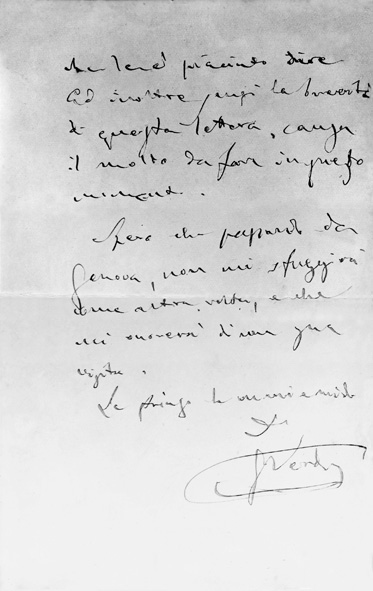 che le sia piaciuto dire
Ed inoltre scusi la brevità
di questa lettera, causa
il molto da fare in questo
momento.
Spero che passando da
Genova, non mi sfuggirà
come altra volta, e che
mi onorerà d'una sua
visita.
Le stringo le mani e mi dico
Suo
G Verdi